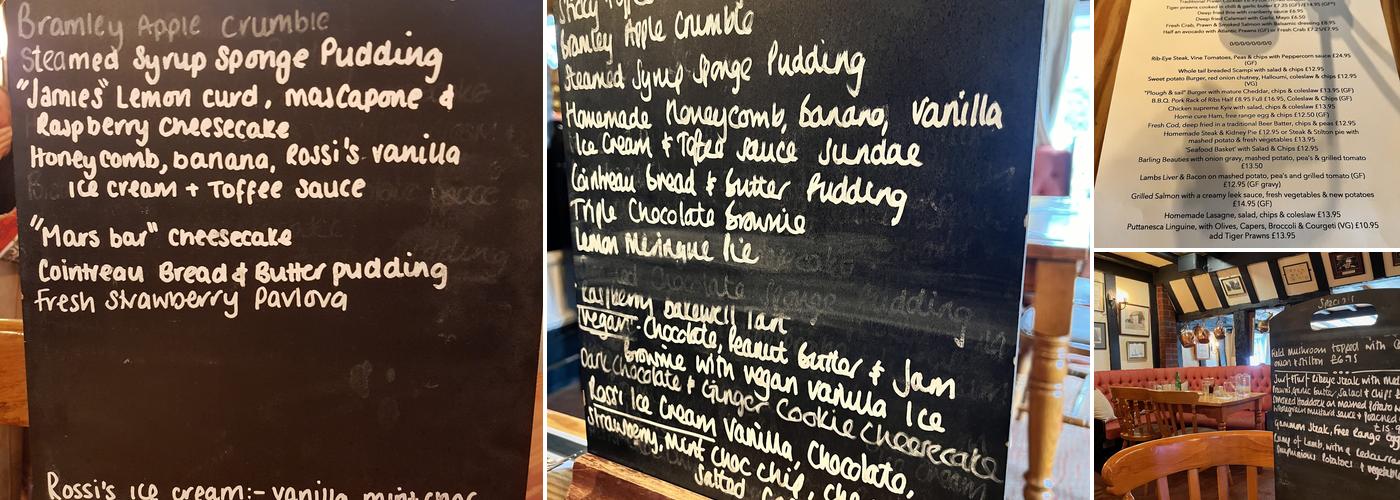 Bramley Apple Crumble
Steamed Syrup Sponge Pudding
"Jamies" Lemon curd, mascapone &
Raspberry Cheesecake
Honeycomb, banana, Rossi's vanilla
Ice cream + Toffee sauce
"Mars bar" cheesecake
Cointreau Bread & Butter pudding
Fresh Strawberry Pavlova
Rossi's Ice cream:- vanilla, mint choc
Sticky Toffee
Bramley Apple Crumble
Steamed Syrup Sponge Pudding
Homemade Honeycomb, banana, vanilla
Ice Cream & Toffee sauce Sundae
Cointreau bread & butter Pudding
Triple Chocolate brownie
Lemon Meringue Pie
Raspberry bakewell Tart
Vegan - Chocolate, Peanut butter & Jam
brownie with vegan vanilla Ice
Dark chocolate & Ginger Cookie Cheesecake
Rossi Ice Cream Vanilla, Chocolate,
Strawberry, mint choc chip,
Salted
Tiger prawns cooked in chilli & garlic butter £7.25 (GF)/£14.95 (GF*)
Deep fried Brie with cranberry sauce £6.95
Deep fried Calamari with Garlic Mayo £6.50
Fresh Crab, Prawn & Smoked Salmon with Balsamic dressing £8.95
Half an avocado with Atlantic Prawns (GF) or Fresh Crab £7.25/£7.95
0/0/0/0/0/0/0
Rib-Eye Steak, Vine Tomatoes, Peas & chips with Peppercorn sauce £24.95
(GF)
Whole tail breaded Scampi with salad & chips £12.95
Sweet potato Burger, red onion chutney, Halloumi, coleslaw & chips £12.95
(VG)
"Plough & sail" Burger with mature Cheddar, chips & coleslaw £13.95 (GF)
B.B.Q. Pork Rack of Ribs Half £8.95 Full £16.95, Coleslaw & Chips (GF)
Chicken supreme Kyiv with salad, chips & coleslaw £13.95
Home cure Ham, free range egg & chips £12.50 (GF)
Fresh Cod, deep fried in a traditional Beer Batter, chips & peas £12.95
Homemade Steak & Kidney Pie £12.95 or Steak & Stilton pie with
mashed potato & fresh vegetables £13.95
'Seafood Basket' with Salad & Chips £12.95
Barling Beauties with onion gravy, mashed potato, pea's & grilled tomato
£13.50
Lambs Liver & Bacon on mashed potato, pea's and grilled tomato (GF)
£12.95 (GF gravy)
Grilled Salmon with a creamy leek sauce, fresh vegetables & new potatoes
£14.95 (GF)
Homemade Lasagne, salad, chips & coleslaw £13.95
Puttanesca Linguine, with Olives, Capers, Broccoli & Courgeti (VG) £10.95
add Tiger Prawns £13.95
Specials
Field Mushroom topped with
onion & Stilton £6.75
Surf+Turf ribeye steak with
Prawns garlic butter Salad & Chips
Smoked Haddock on Mashed Potato
Wholegrain mustard sauce & Poached
Gammon Steak, Free Range egg
Rump of Lamb, with a
Potatoes & vegetable